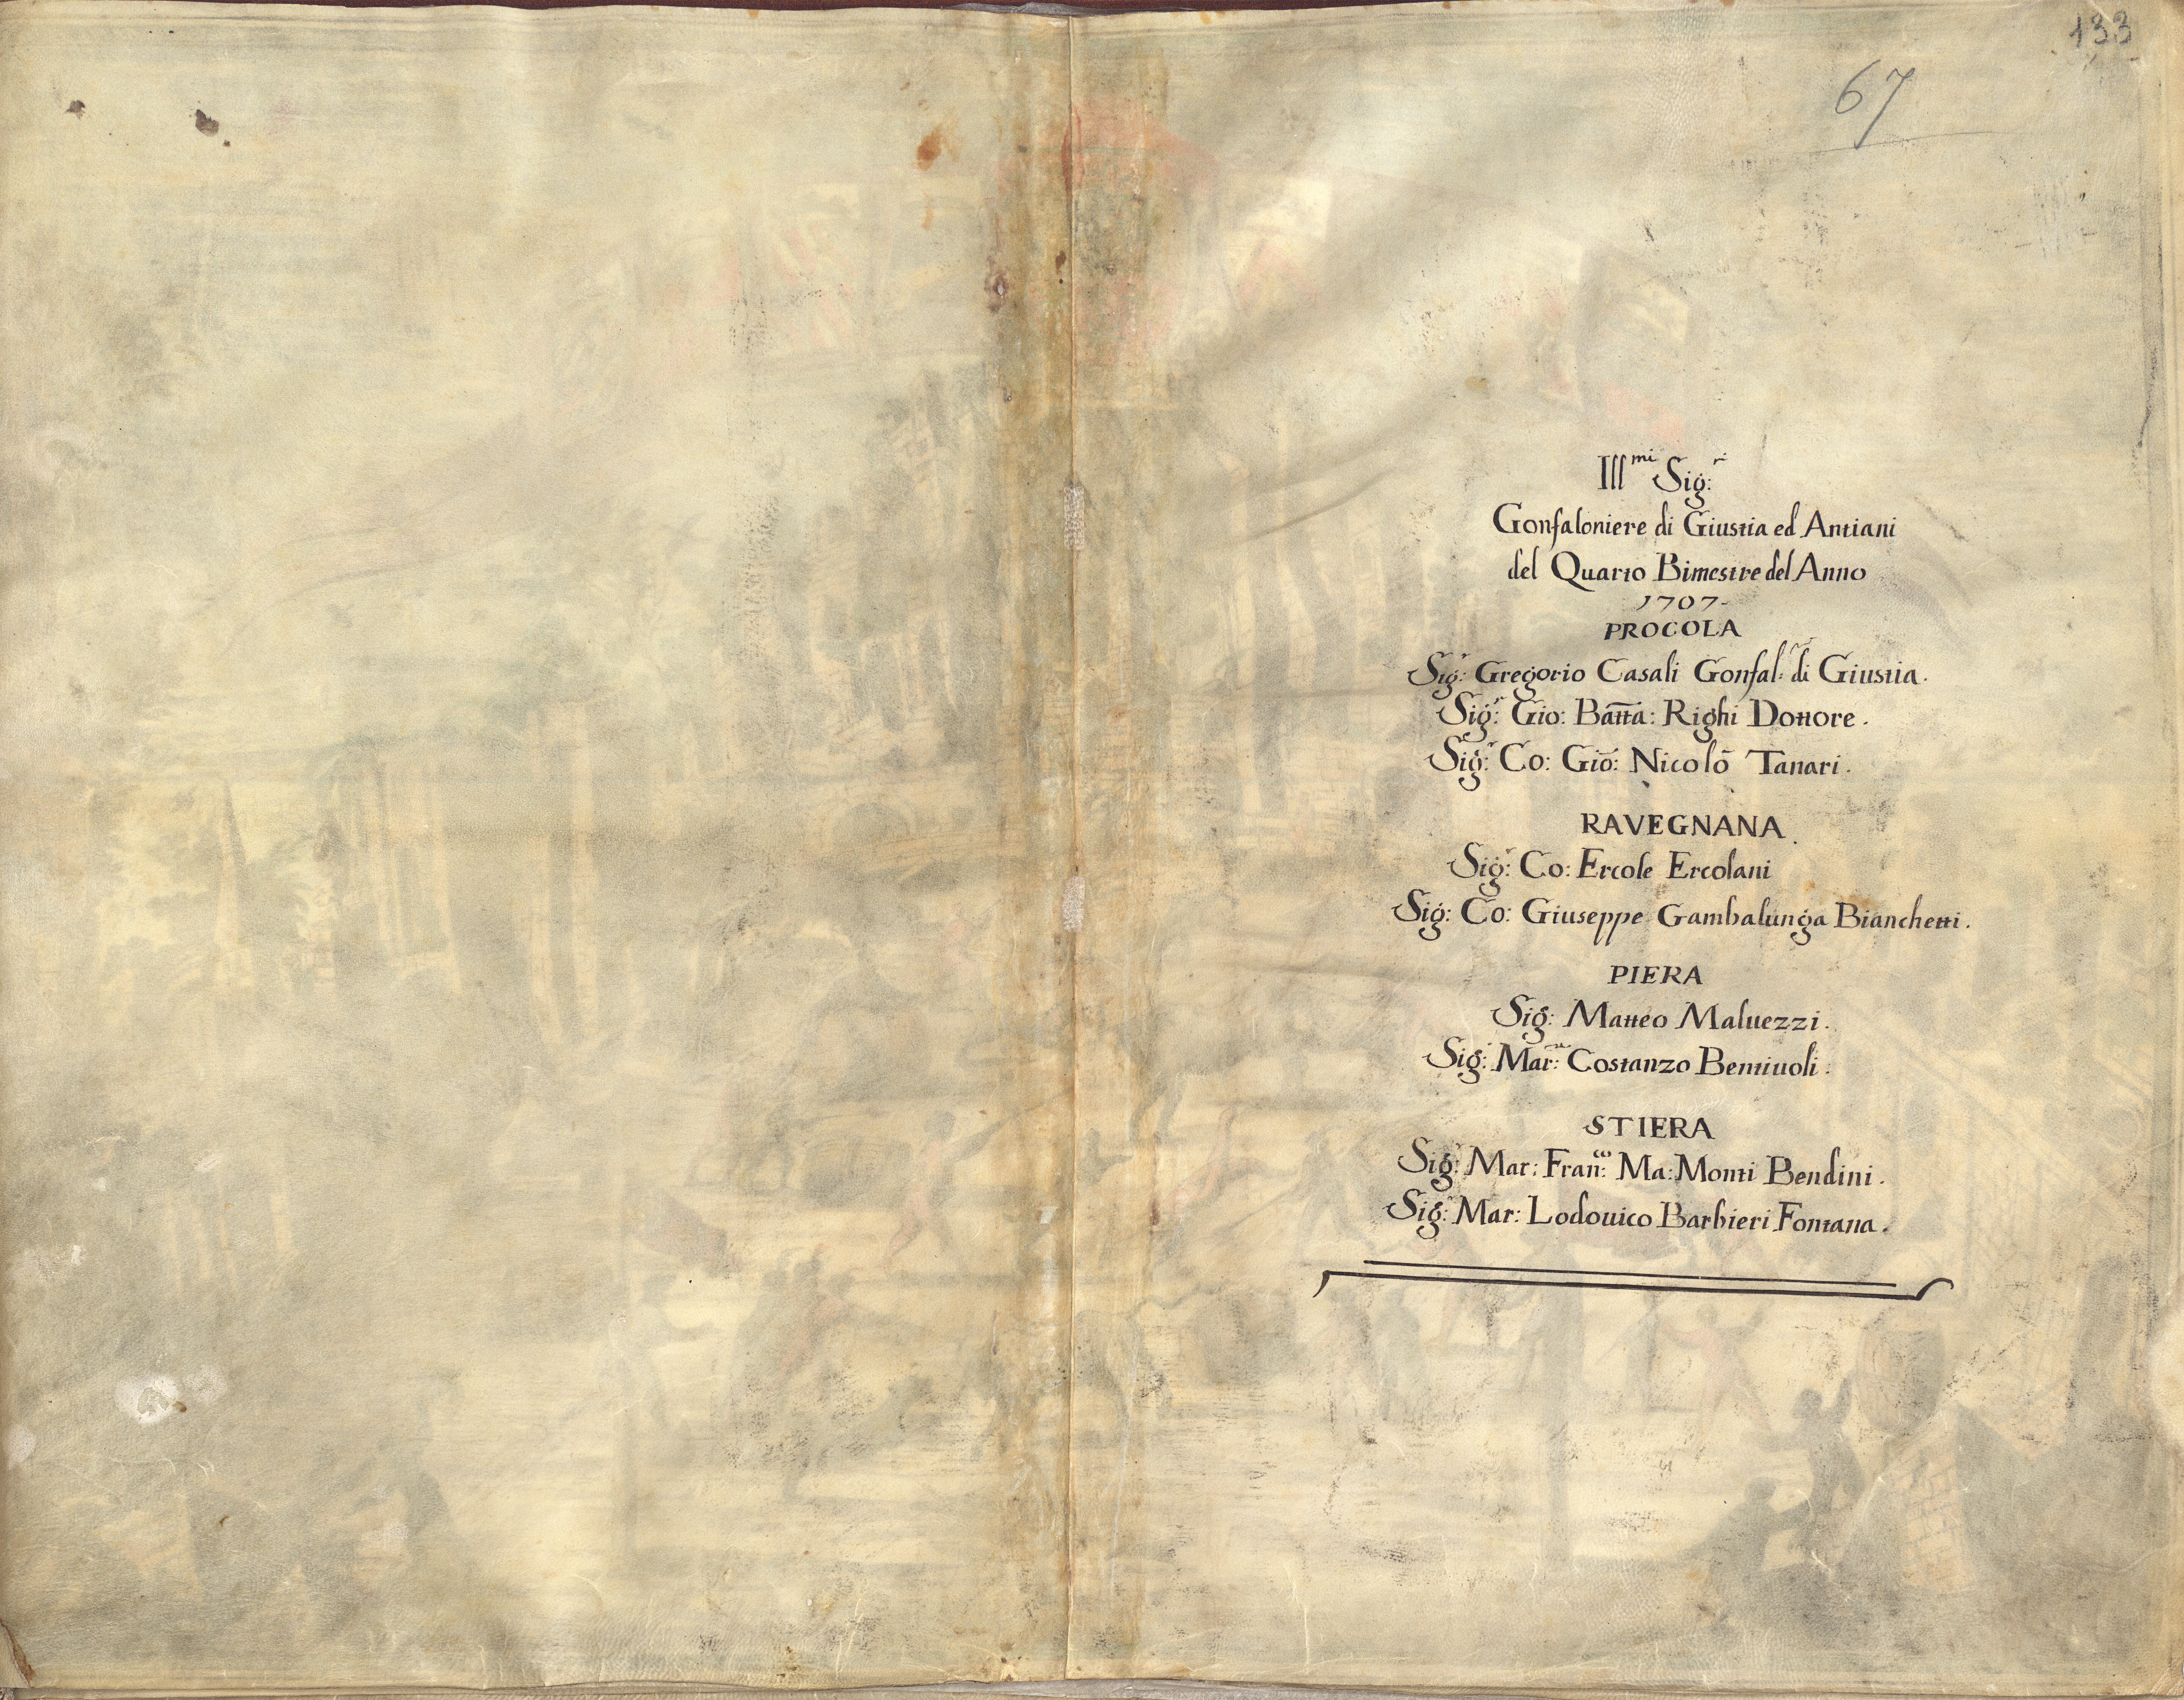 133
67
Ill^mi Sig:^ri
Gonfaloniere di Giustia ed Antiani
del Quarto Bimestre del Anno
1707-
PROCOLA
Sig:^r Gregorio Casali Gonfal:^re di Giustia.
Sig:^r Gio: Batta: Righi Dottore.
Sig:^r Co: Gio: Nicolò Tanari.
RAVEGNANA
Sig:^r Co: Ercole Ercolani
Sig: Co: Giuseppe Gambalunga Bianchetti.
PIERA
Sig: Matteo Maluezzi.
Sig:^r Mar:^se Costanzo Bentiuoli.
STIERA
Sig:^r Mar: Fran:^co Ma: Monti Bendini.
Sig:^r Mar: Lodouico Barbieri Fontana.